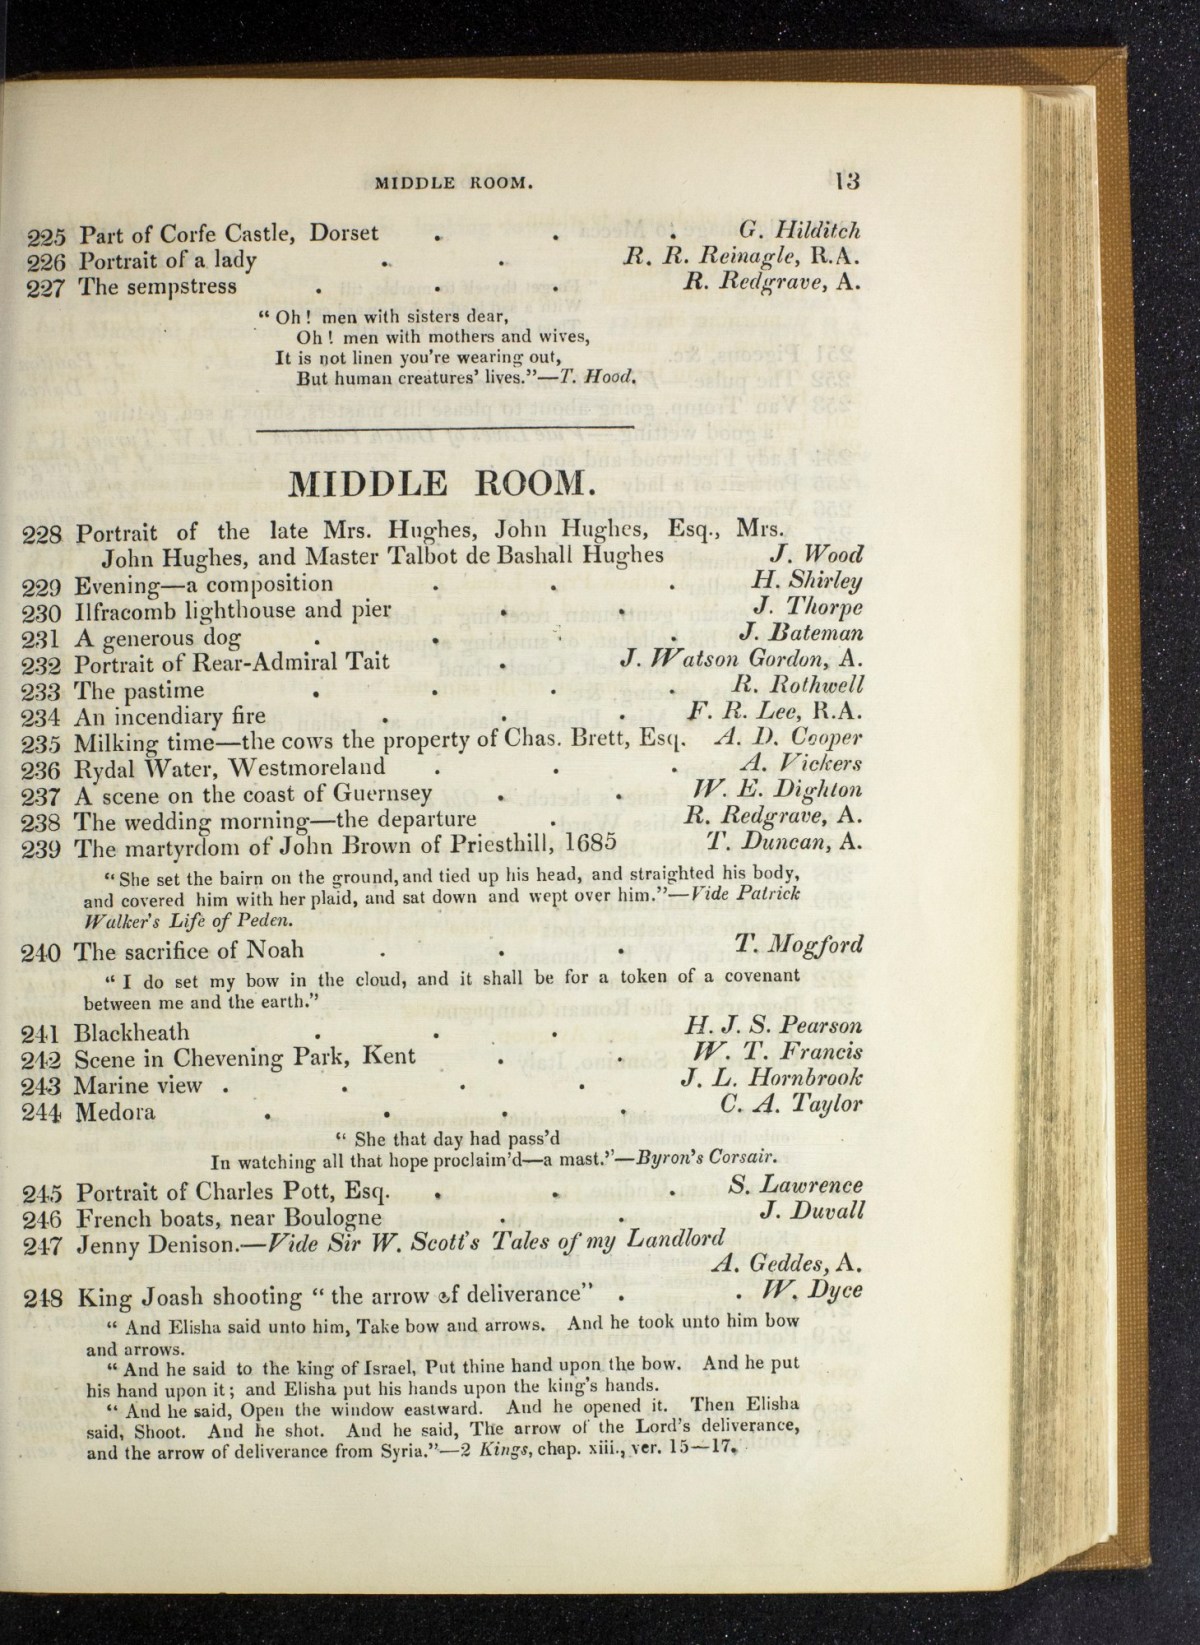 MIDDLE ROOM. 13
225 Part of Corfe Castle, Dorset . . . G. Hilditch
226 Portrait of a lady . . R. R. Reinagle, R.A.
227 The sempstress . . . R. Redgrave, A.
“ Oh ! men with sisters dear,
Oh ! men with mothers and wives,
It is not linen you’re wearing out,
But human creatures’ lives.”—T. Hood.
MIDDLE ROOM.
228 Portrait of the late Mrs. Hughes, John Hughes, Esq., Mrs.
John Hughes, and Master Talbot de Bashall Hughes J. Wood
229 Evening—a composition . . . H. Shirley
230 Ilfracomb lighthouse and pier . . J. Thorpe
231 A generous dog . . . . J. Bateman
232 Portrait of Rear-Admiral Tait . J. Watson Gordon, A.
233 The pastime . . . . R. Rothwell
234 An incendiary fire . . . F. R. Lee, R.A.
235 Milking time—the cows the property of Chas. Brett, Esq. A. D. Cooper
236 Rydal Water, Westmoreland . . . A. Vickers
237 A scene on the coast of Guernsey . . W. E. Dighton
238 The wedding morning—the departure . R. Redgrave, A.
239 The martyrdom of John Brown of Priesthill, 1685 T. Duncan, A.
“ She set the bairn on the ground, and tied up his head, and straighted his body,
and covered him with her plaid, and sat down and wept over him.”—Vide Patrick
Walker’s Life of Peden.
240 The sacrifice of Noah . . . T. Mogford
“ I do set my bow in the cloud, and it shall be for a token of a covenant
between me and the earth.”
241 Blackheath . . . H. J. S. Pearson
242 Scene in Chevening Park, Kent . . W. T. Francis
243 Marine view . . . . J. L. Hornbrook
244 Medora . . . . C. A. Taylor
“ She that day had pass’d
In watching all that hope proclaim’d—a mast.”—Byron’s Corsair.
245 Portrait of Charles Pott, Esq. . . . S. Lawrence
246 French boats, near Boulogne . . J. Duvall
247 Jenny Denison.—Vide Sir W. Scott’s Tales of my Landlord
A. Geddes, A.
248 King Joash shooting “ the arrow of deliverance” . . W. Dyce
“ And Elisha said unto him, Take bow and arrows. And he took unto him bow
and arrows.
“ And he said to the king of Israel, Put thine hand upon the bow. And he put
his hand upon it ; and Elisha put his hands upon the king’s hands.
“ And he said, Open the window eastward. And he opened it. Then Elisha
said, Shoot. And he shot. And he said, The arrow of the Lord’s deliverance,
and the arrow of deliverance from Syria.”—2 Kings, chap. xiii., ver. 15—17.